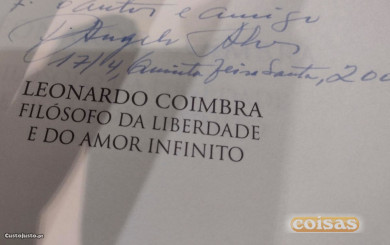 e amigo
Angelo Alves
17/4, Quinta feira Santa, 200
LEONARDO COIMBRA
FILÓSOFO DA LIBERDADE
E DO AMOR INFINITO
CustoJusto.pt
coisas